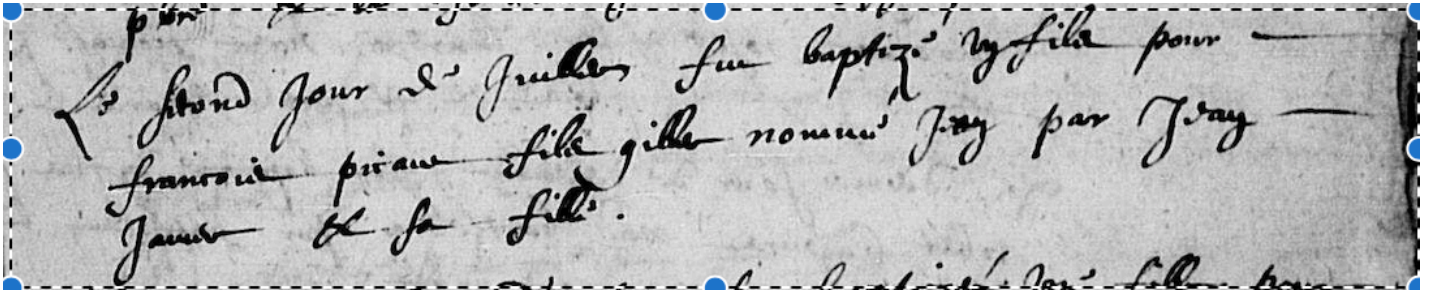 Le second Jour de Juillet fut baptizé vng filz pour
francois picaut filz gilles nommé Jean par Jean
Januer & sa fille.